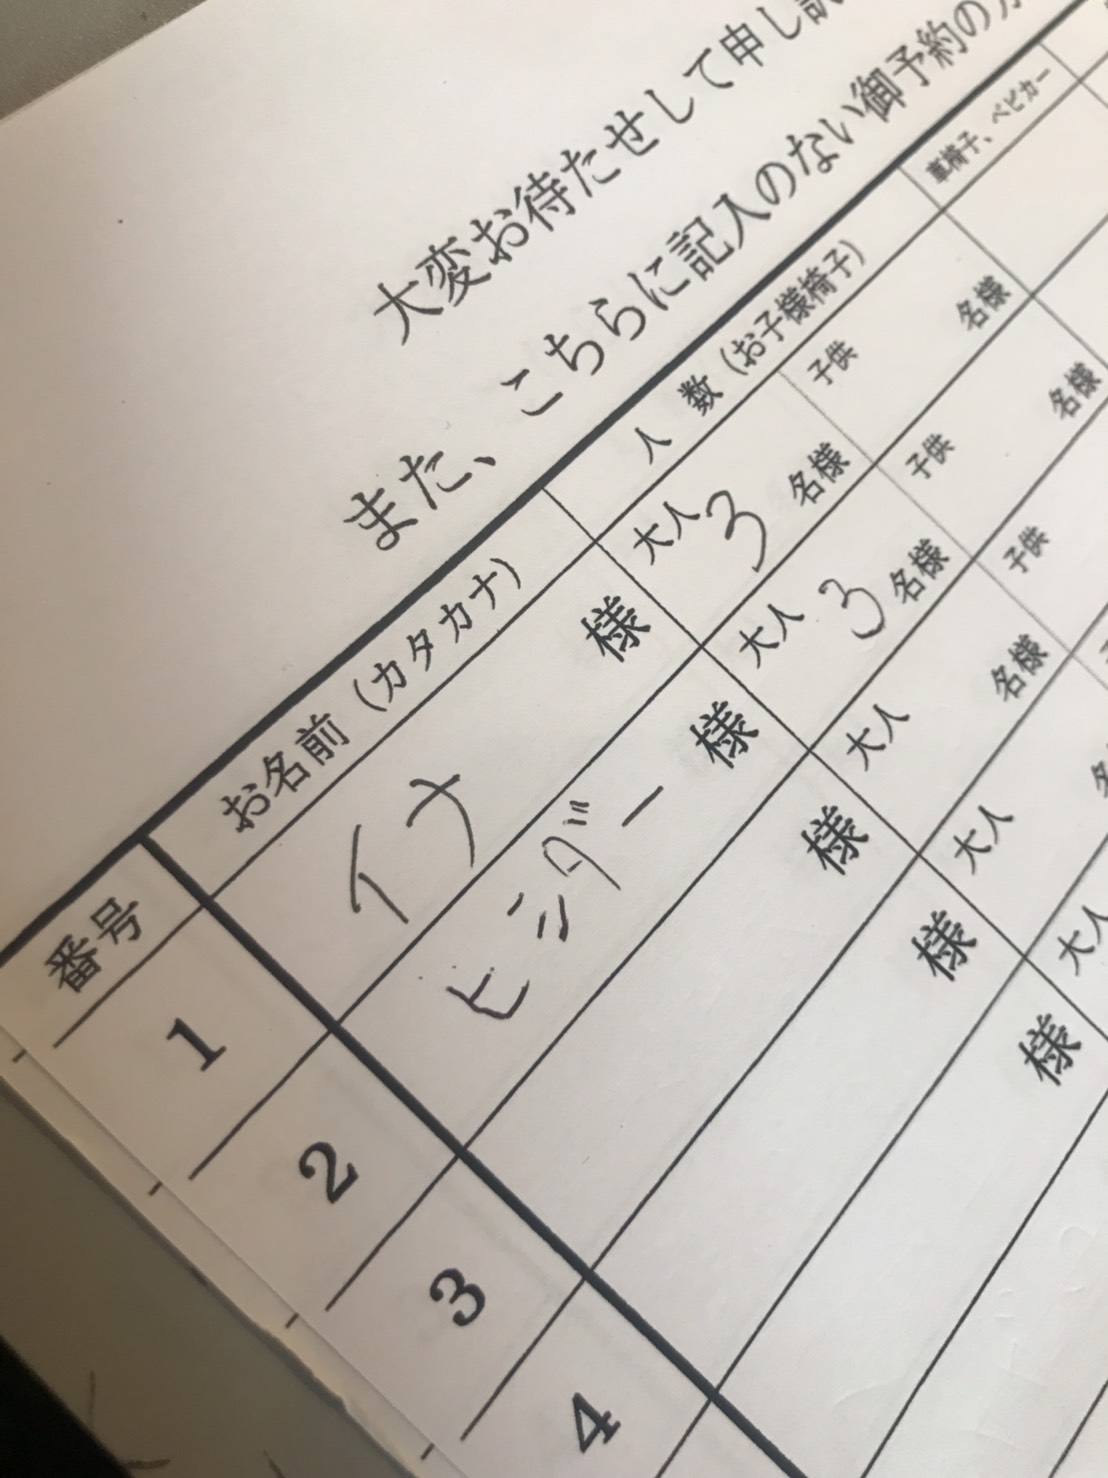 大変お待たせして申し訳
また、こちらに記入のない御予約の方
番号 お名前（カタカナ） 人 数（お子様椅子） 車椅子、ベビカー
1 イナ 様 大人 3 名様 子供 名様
2 ヒンダー 様 大人 3 名様 子供 名様
3 様 大人 名様 子供
4 様 大人 名
様 大人